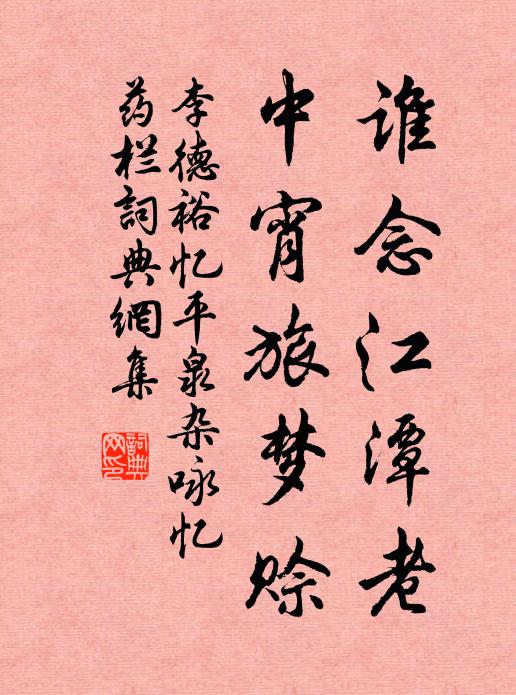 谁念江潭老
中宵旅梦赊
李德裕忆平泉杂咏忆
药栏詞典網集
詞典
网印